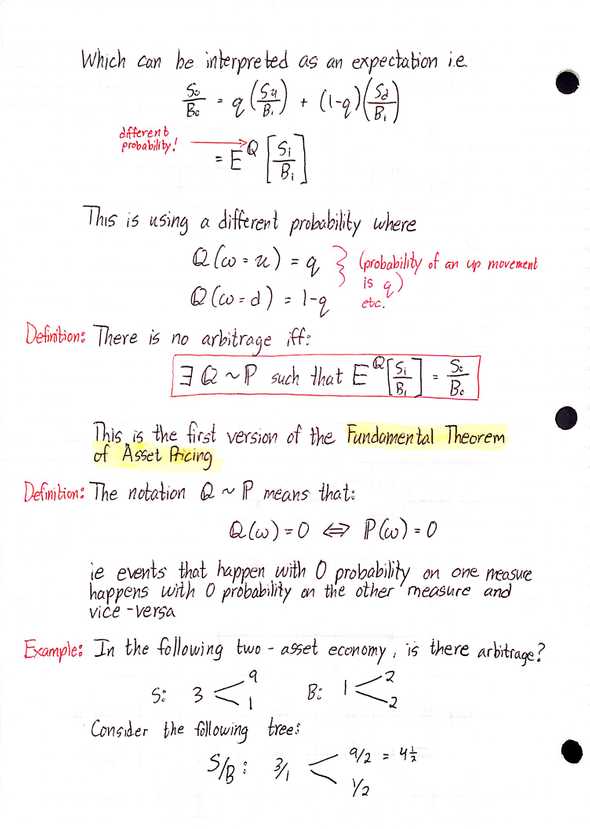 Which can be interpreted as an expectation i.e.
S₀/B₀ = q(Sᵤ/B₁) + (1-q)(S_d/B₁)
different probability!
= E^Q [S₁/B₁]
This is using a different probability where
Q(ω=u) = q } (probability of an up movement is q)
Q(ω=d) = 1-q etc.
Definition: There is no arbitrage iff:
∃ Q ~ P such that E^Q[S₁/B₁] = S₀/B₀
This is the first version of the Fundamental Theorem
of Asset Pricing
Definition: The notation Q ~ P means that:
Q(ω) = 0 ⇔ P(ω) = 0
ie events that happen with 0 probability on one measure
happens with 0 probability on the other measure and
vice-versa
Example: In the following two-asset economy, is there arbitrage?
S: 3 < 9 1 B: 1 < 2 2
Consider the following tree:
S/B: 3/1 < 9/2 = 4½ 1/2